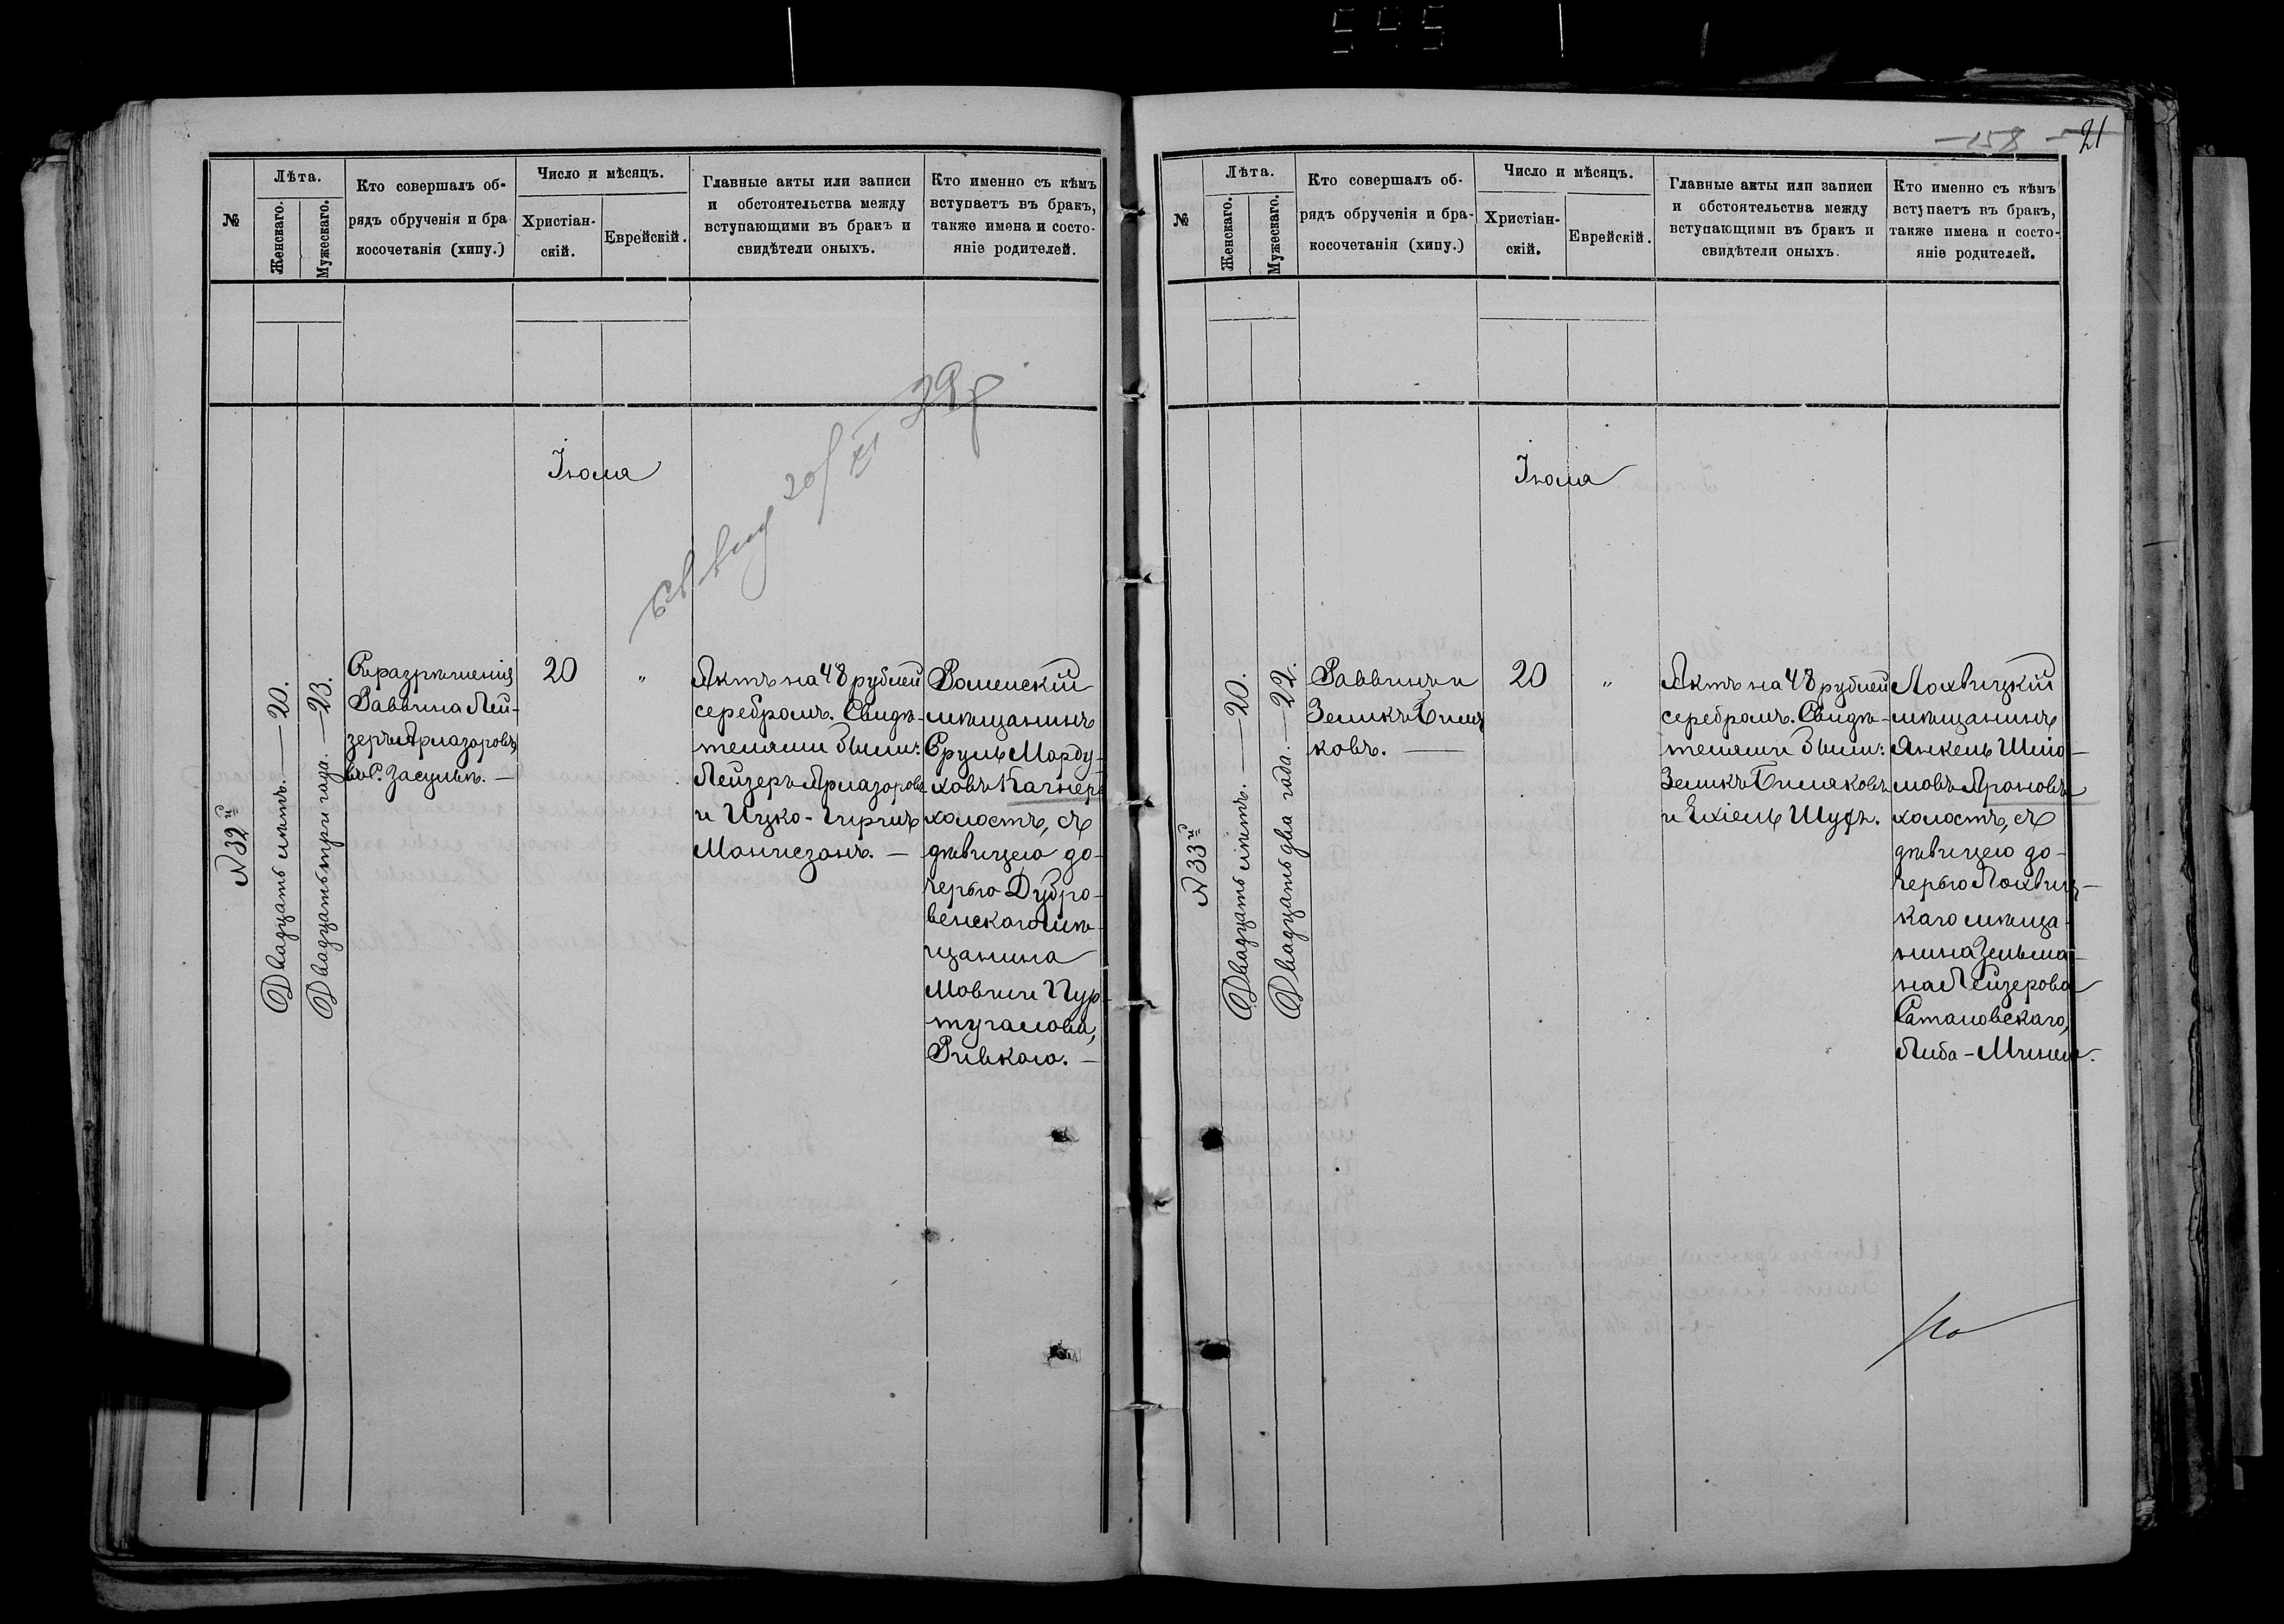 №
Лѣта.
Женскаго.
Мужескаго.
Кто совершалъ об-
рядъ обрученія и бра
косочетанія (хипу.)
Число и мѣсяцъ.
Христіан-
скій.
Еврейскій.
Главные акты или записи
и обстоятельства между
вступающими въ бракъ и
свидѣтели оныхъ.
Кто именно съ кѣмъ
вступаетъ въ бракъ,
также имена и состо-
яніе родителей.
Іюля
20/XI 39 г
№ 32й
Двадцать лѣтъ. — 20.
Двадцать три года. — 23.
Съ разрѣшенія
Раввина Лей-
зеръ Арлазоровъ
въ С. Засульѣ. —
20
"
Актъ на 48 рублей
серебромъ. Свидѣ-
телями были:
Лейзеръ Арлазоровъ
и Ицко-Гиршъ
Монгезонъ. —
Роменскій
мѣщанинъ
Сруль Морду-
ховъ Кагнеръ
холостъ, съ
дѣвицею до-
черью Дубро-
венскаго мѣ-
щанина
Мовши Пур-
тугалова,
Ривкою. —
158
21
№
Лѣта.
Женскаго.
Мужескаго.
Кто совершалъ об-
рядъ обрученія и бра-
косочетанія (хипу.)
Число и мѣсяцъ.
Христіан-
скій.
Еврейскій.
Главные акты или записи
и обстоятельства между
вступающими въ бракъ и
свидѣтели оныхъ.
Кто именно съ кѣмъ
вступаетъ въ бракъ,
также имена и состо-
яніе родителей.
Іюля
№ 33й
Двадцать лѣтъ. — 20.
Двадцать два года. — 22.
Раввинъ и
Земикъ Бимя
ковъ. —
20
"
Актъ на 48 рублей
серебромъ. Свидѣ-
телями были:
Земикъ Бимяковъ
и Ехіель Шуфъ.
Лохвицкій
мѣщанинъ
Янкель Шлио-
мовъ Ароновъ
холостъ, съ
дѣвицею до-
черью Лохвиц-
каго мѣща-
нина Зельма-
на Лейзерова
Сатановскаго,
Либа-Минею.